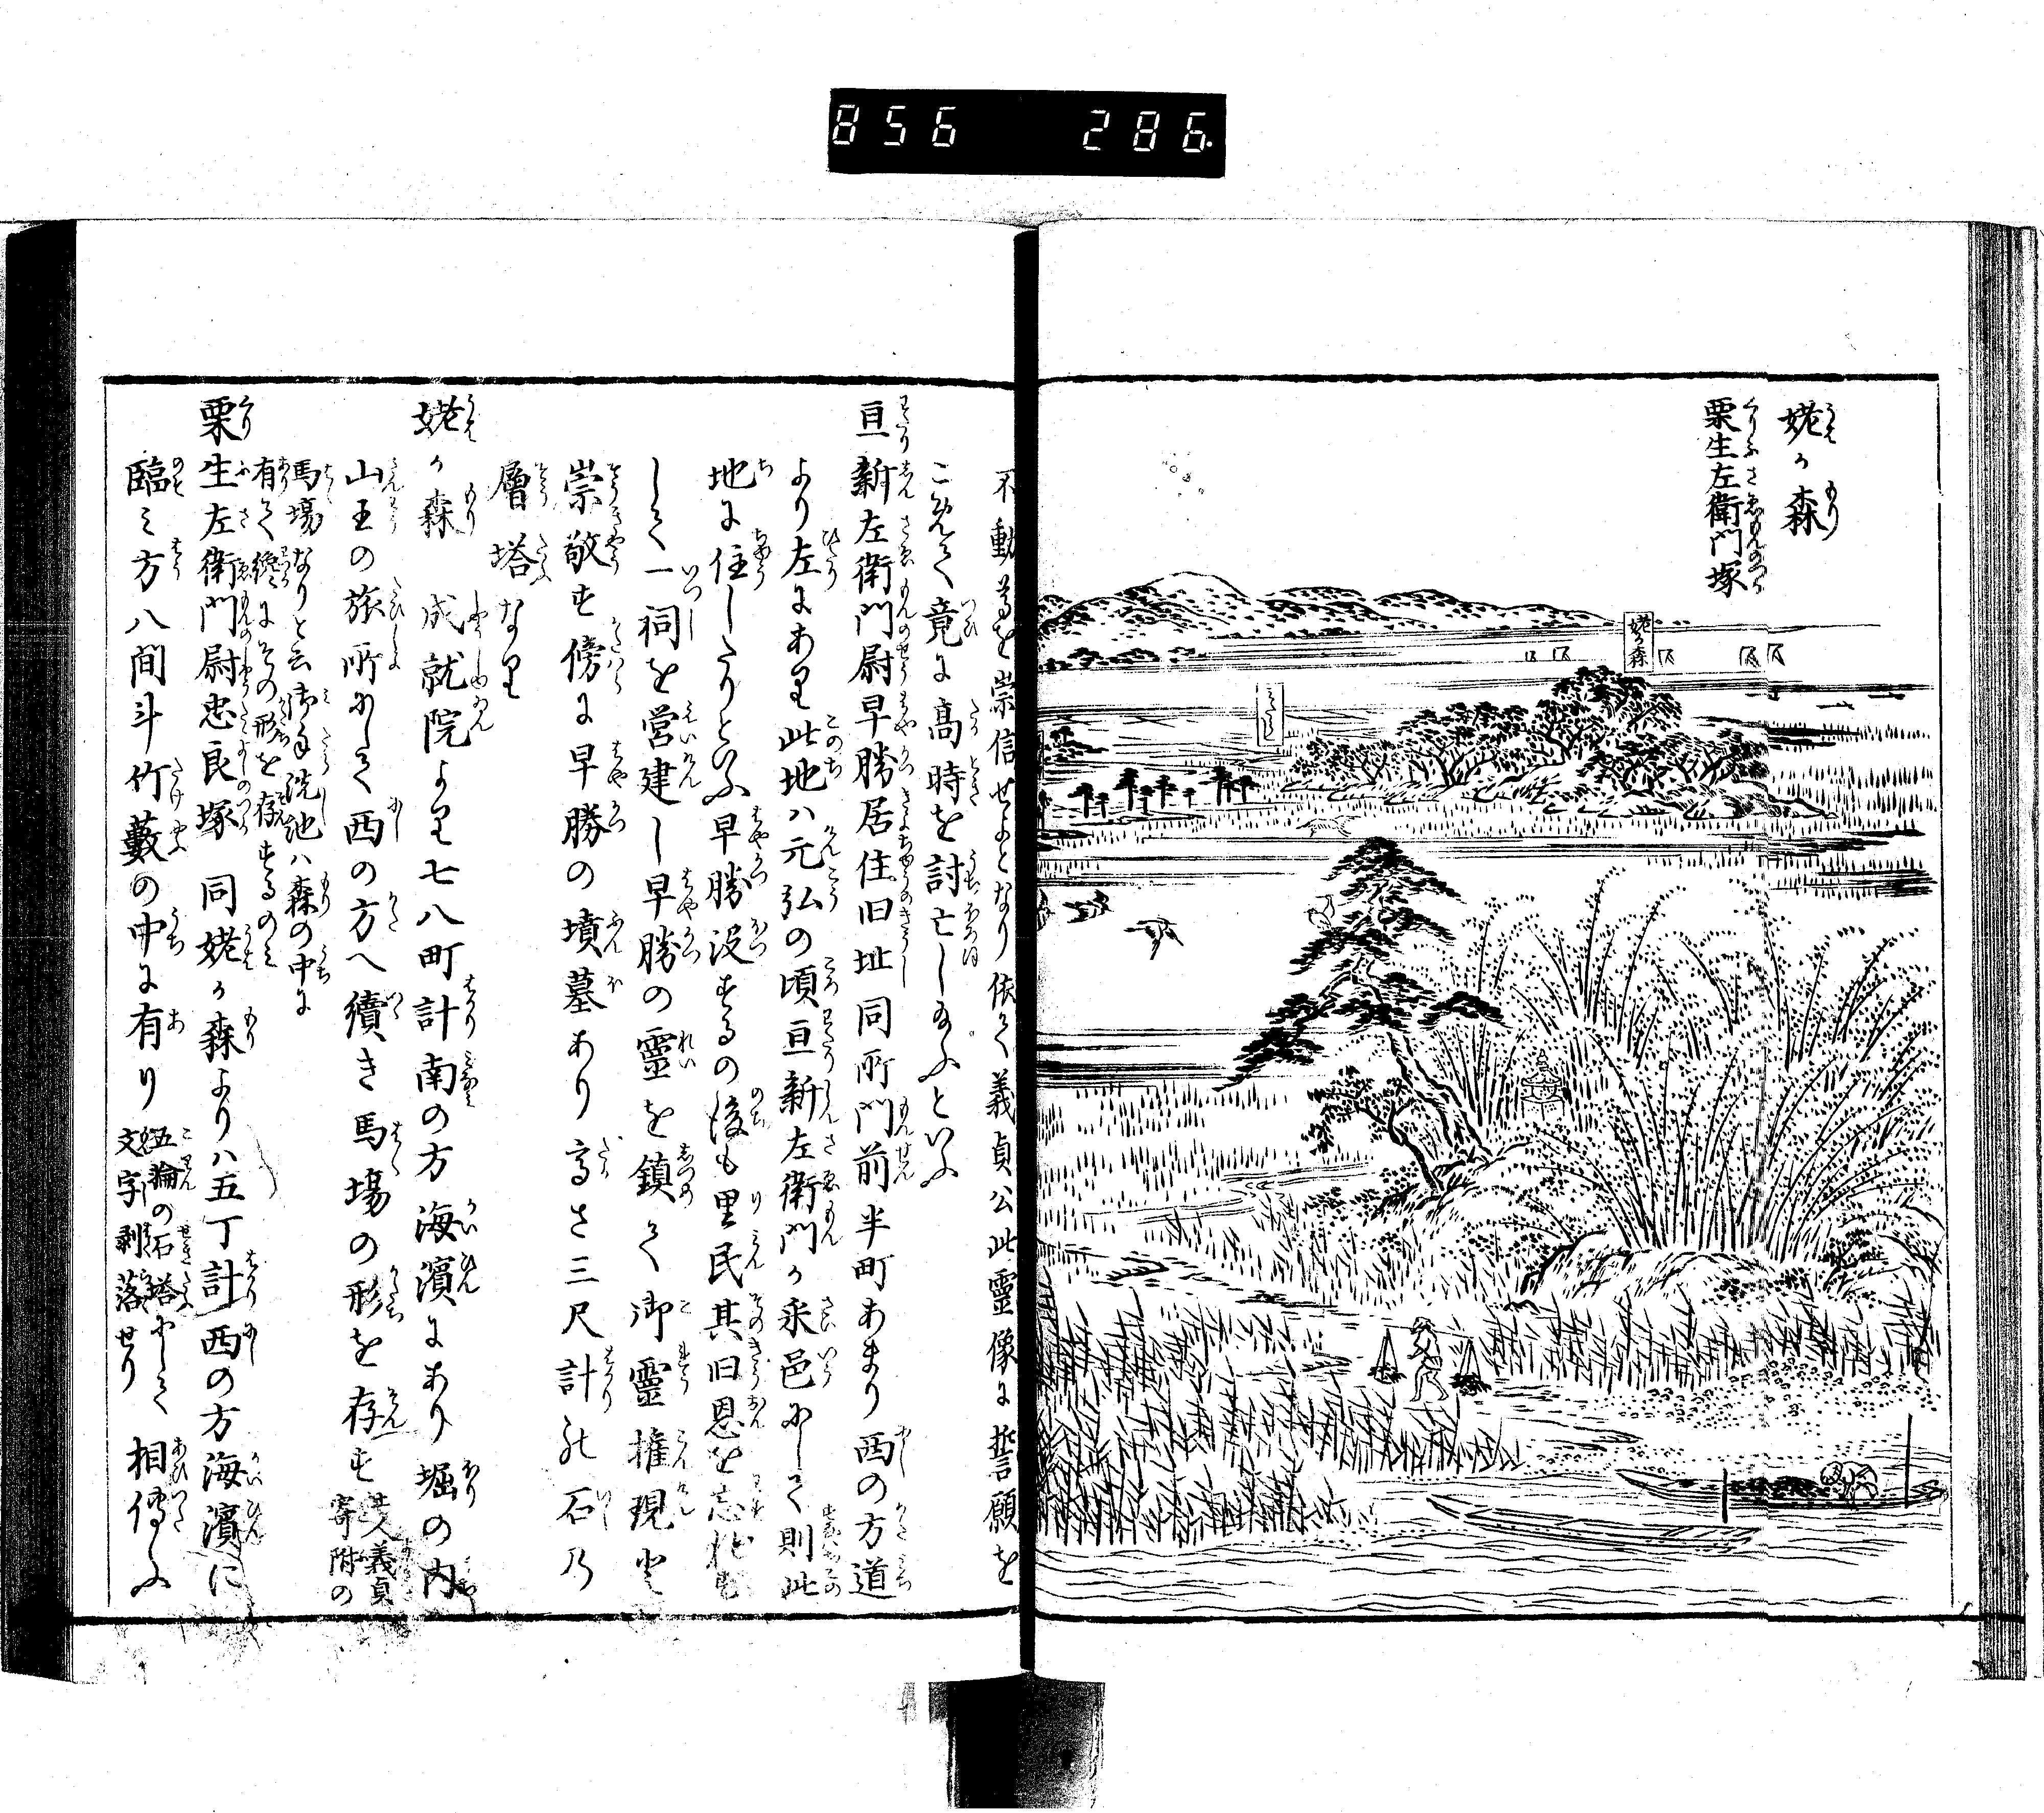 856 286
姥か森
栗生左衛門塚
姥か森
不動尊を崇信せよとなり依て義貞公此靈像に誓願を
こめて竟に高時を討亡し給ふといふ
亘新左衛門尉早勝居住旧址 同所門前半町あまり西の方道
より左にあり此地ハ元弘の頃亘新左衛門か采邑にして則此
地に住したりといふ早勝没するの後も里民其旧恩を忘れも
して一祠を営建し早勝の靈を鎮て御靈権現と
崇敬す傍に早勝の墳墓あり高さ三尺計の石の
層塔なり
姥か森 成就院より七八町計南の方海濱にあり堀の内
山王の旅所にして西の方へ續き馬場の形を存す 昔義貞
寄附の
馬場なりと云御手洗池ハ森の中に
有て纔にその形を存するのミ
栗生左衛門尉忠良塚 同姥か森よりハ五丁計西の方海濱に
臨ミ方八間斗竹藪の中に有り 五輪の石塔にして
文字剥落せり 相傳ふ